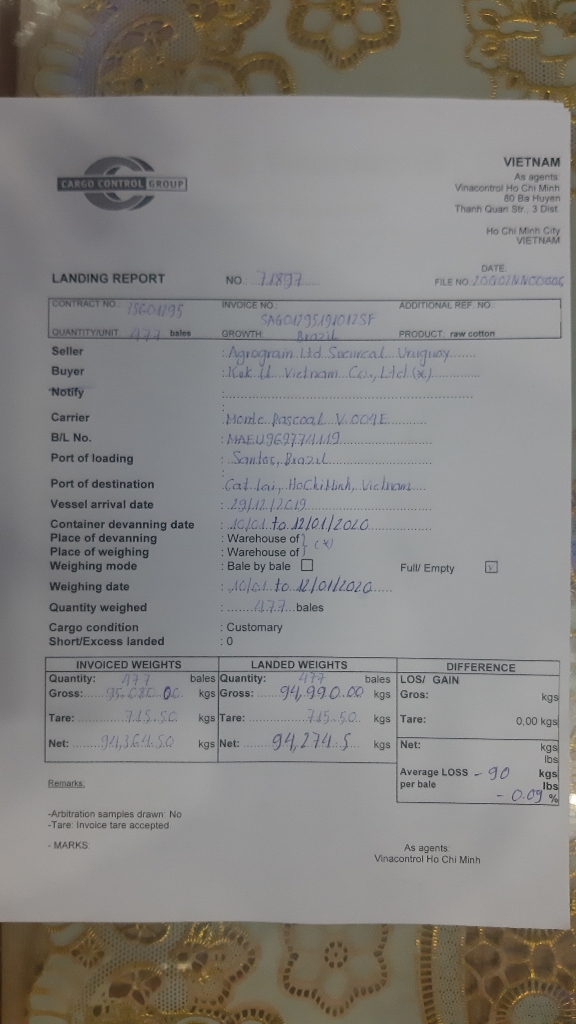 CARGO CONTROL GROUP
VIETNAM
As agents
Vinacontrol Ho Chi Minh
80 Ba Huyen
Thanh Quan Str., 3 Dist.
Ho Chi Minh City
VIETNAM
DATE:
LANDING REPORT NO. 71897 FILE NO:
CONTRACT NO. INVOICE NO.: ADDITIONAL REF. NO.
QUANTITY/UNIT: 477 bales GROWTH: Brazil PRODUCT: raw cotton
Seller : Agrograin Ltd Sucursal Uruguay
Buyer : Kuk Il Vietnam Co., Ltd (*)
Notify :
Carrier : Monte Pascoal V. 004E
B/L No. :
Port of loading : Santos, Brazil
Port of destination : Cat Lai, HoChiMinh, Vietnam
Vessel arrival date : 29/12/2019
Container devanning date : 10/01 to 12/01/2020
Place of devanning : Warehouse of
Place of weighing : Warehouse of (*)
Weighing mode : Bale by bale Full/ Empty v
Weighing date : 10/01 to 12/01/2020
Quantity weighed : 477 bales
Cargo condition : Customary
Short/Excess landed : 0
INVOICED WEIGHTS LANDED WEIGHTS DIFFERENCE
Quantity: 477 bales Quantity: 477 bales LOS/ GAIN
Gross: 95,080.00 kgs Gross: 94,990.00 kgs Gros: kgs
Tare: 715.50 kgs Tare: 715.50 kgs Tare: 0,00 kgs
Net: 94,364.50 kgs Net: 94,274.5 kgs Net: kgs
lbs
Average LOSS - 90 kgs
per bale lbs
- 0.09 %
Remarks:
-Arbitration samples drawn: No
-Tare: Invoice tare accepted
- MARKS:
As agents:
Vinacontrol Ho Chi Minh